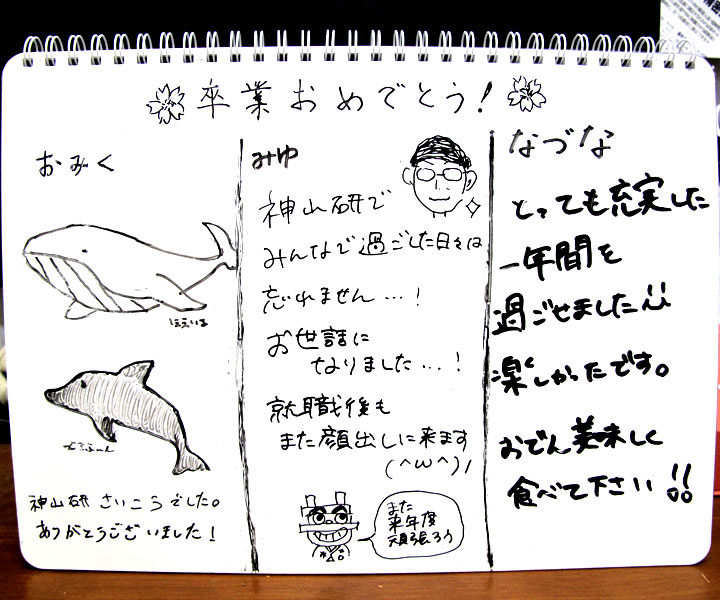 卒業おめでとう!
おみく
ほえいる
どるふぃーん
神山研さいこうでした。
ありがとうございました!
みゆ
神山研で
みんなで過ごした日々は
忘れません…!
お世話に
なりました…!
就職後も
また顔出しに来ます
(^ω^)ノ
また
来年度
頑張ろう
なづな
とっても充実した
一年間を
過ごせました
楽しかったです。
おでん美味しく
食べて下さい!!